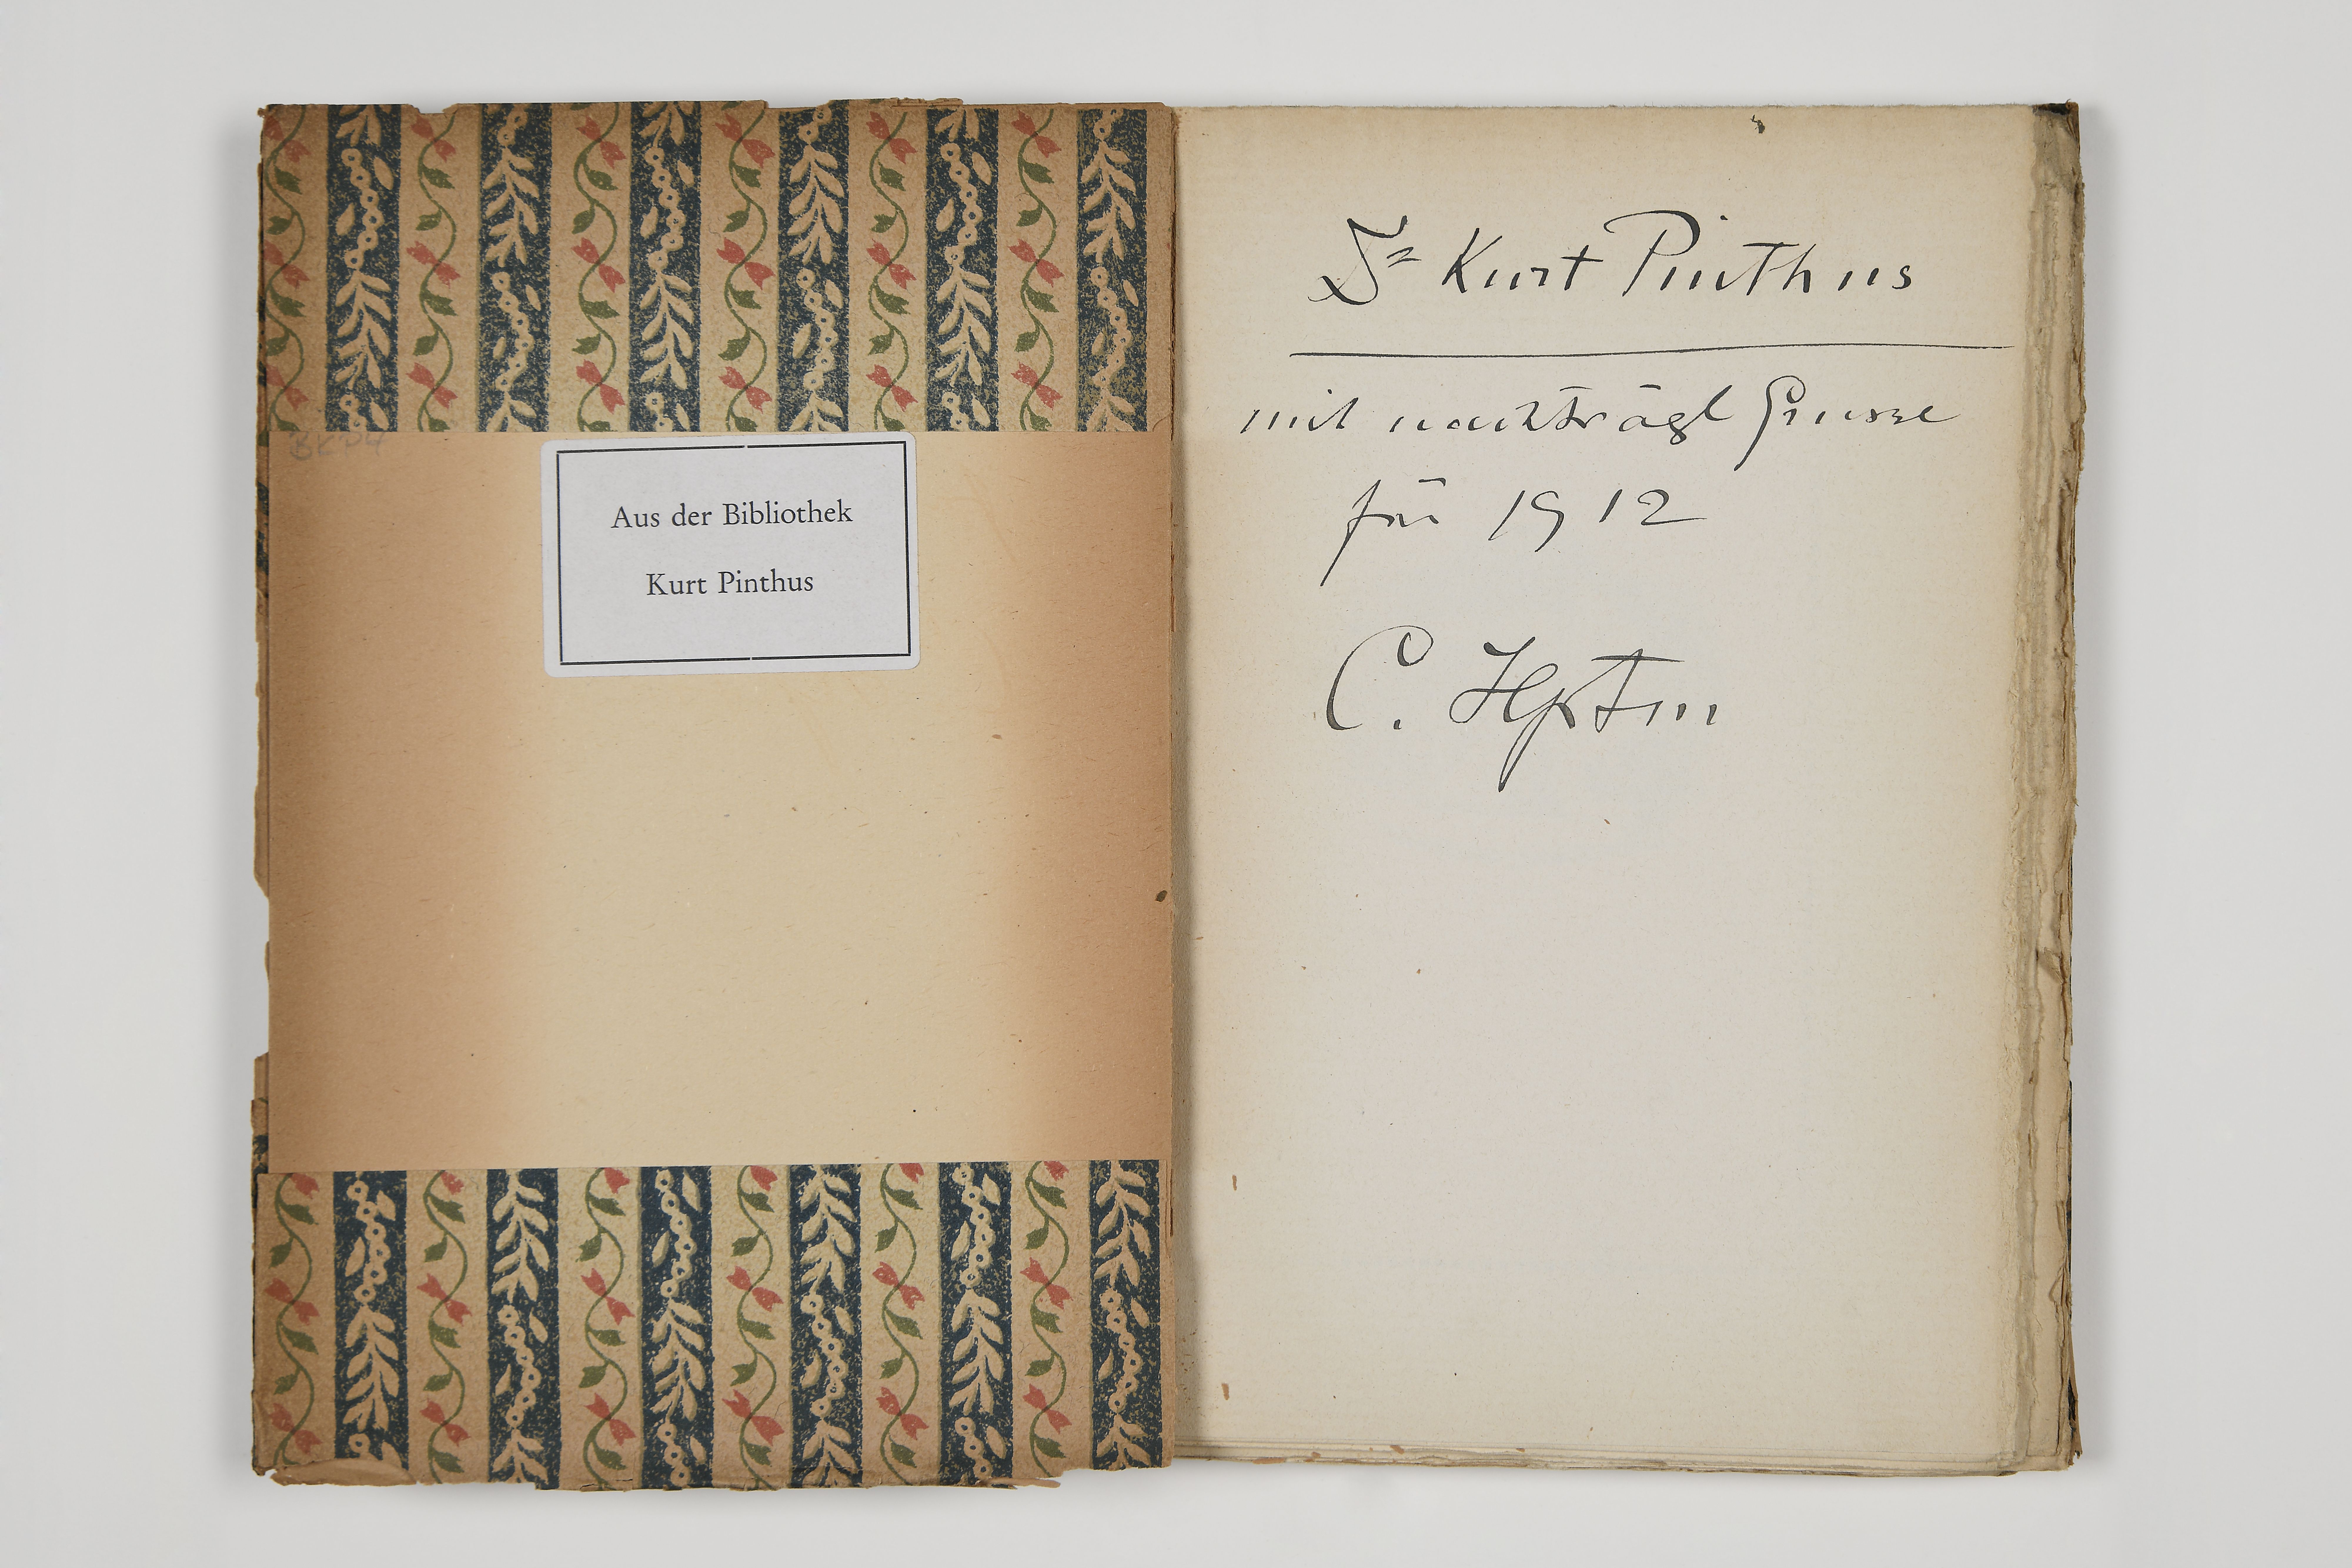 Aus der Bibliothek
Kurt Pinthus
Dr Kurt Pinthus
mit nachträgl Grusse
für 1912
C. Hptm